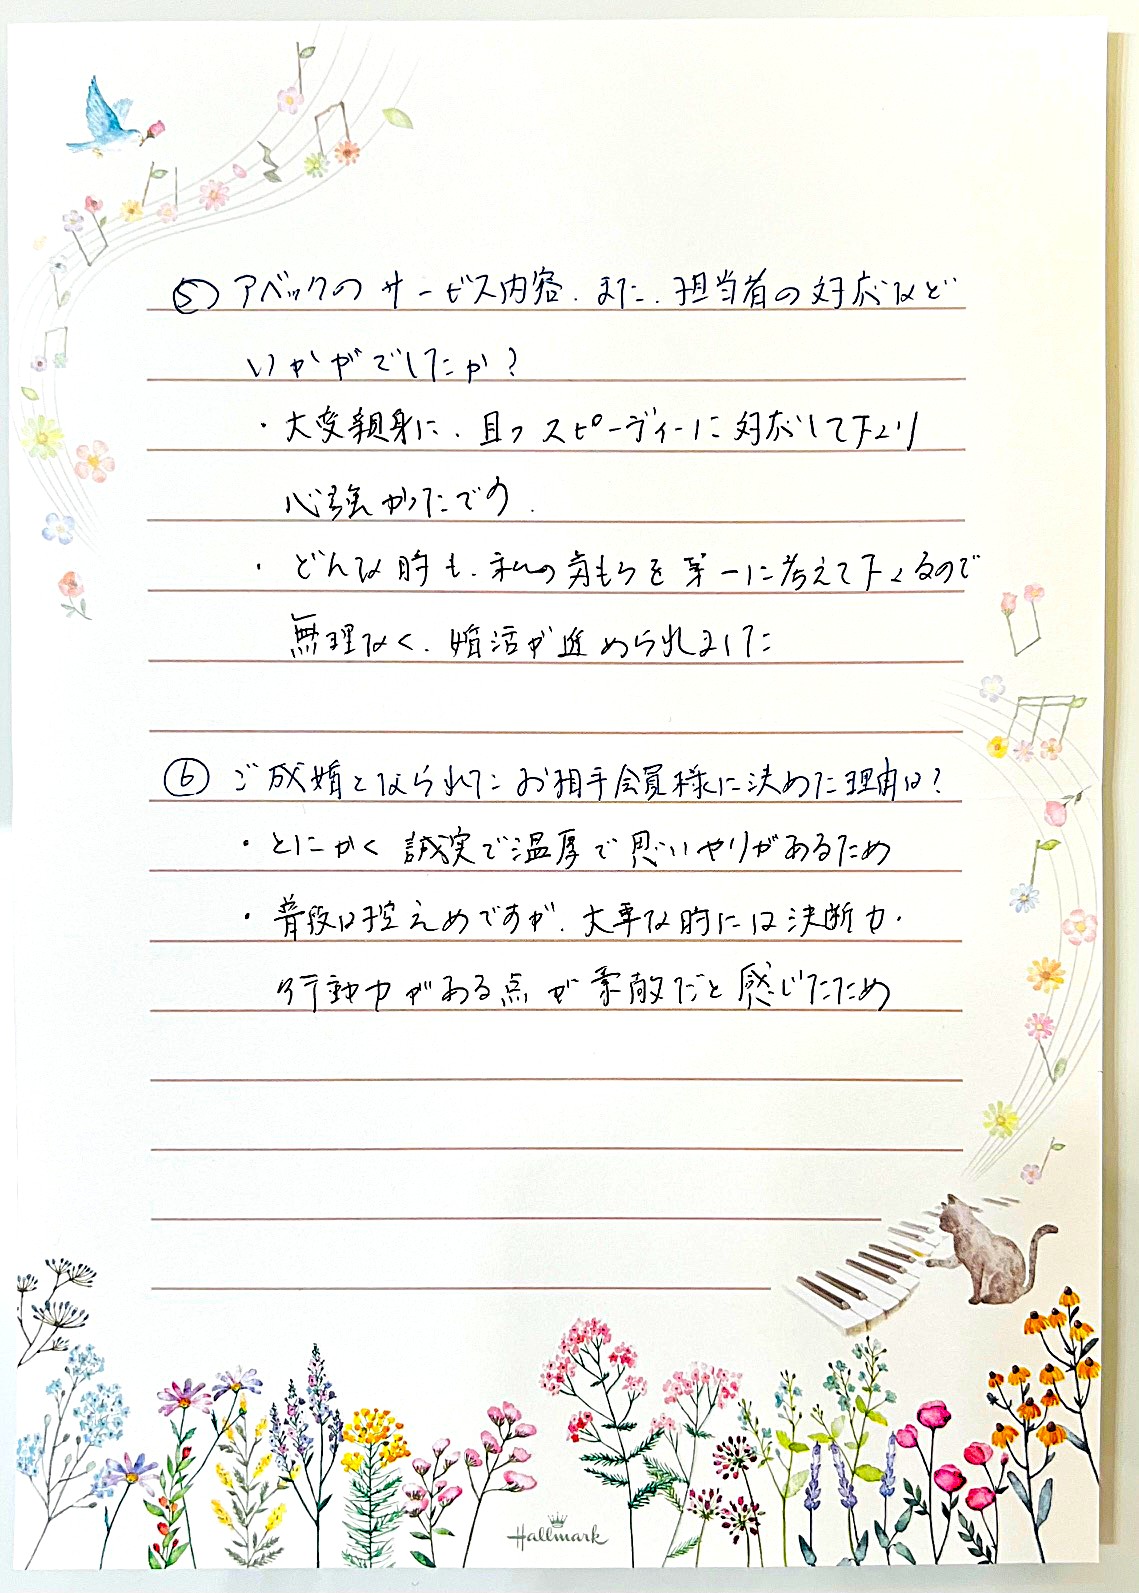 ⑤ アベックのサービス内容、また、担当者の対応など
いかがでしたか？
・大変親身に、且つスピーディーに対応して下さり
心強かったです。
・どんな時も、私の気もちを第一に考えて下さるので
無理なく、婚活が進められました
⑥ ご成婚となられたお相手会員様に決めた理由は？
・とにかく誠実で温厚で思いやりがあるため
・普段は控えめですが、大事な時には決断力・
行動力がある点が素敵だと感じたため
Hallmark